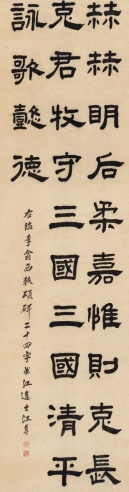 赫赫明后柔嘉惟則克長
克君牧守三國三國清平
詠歌懿德
右臨李翕西狹頌碑二十四字